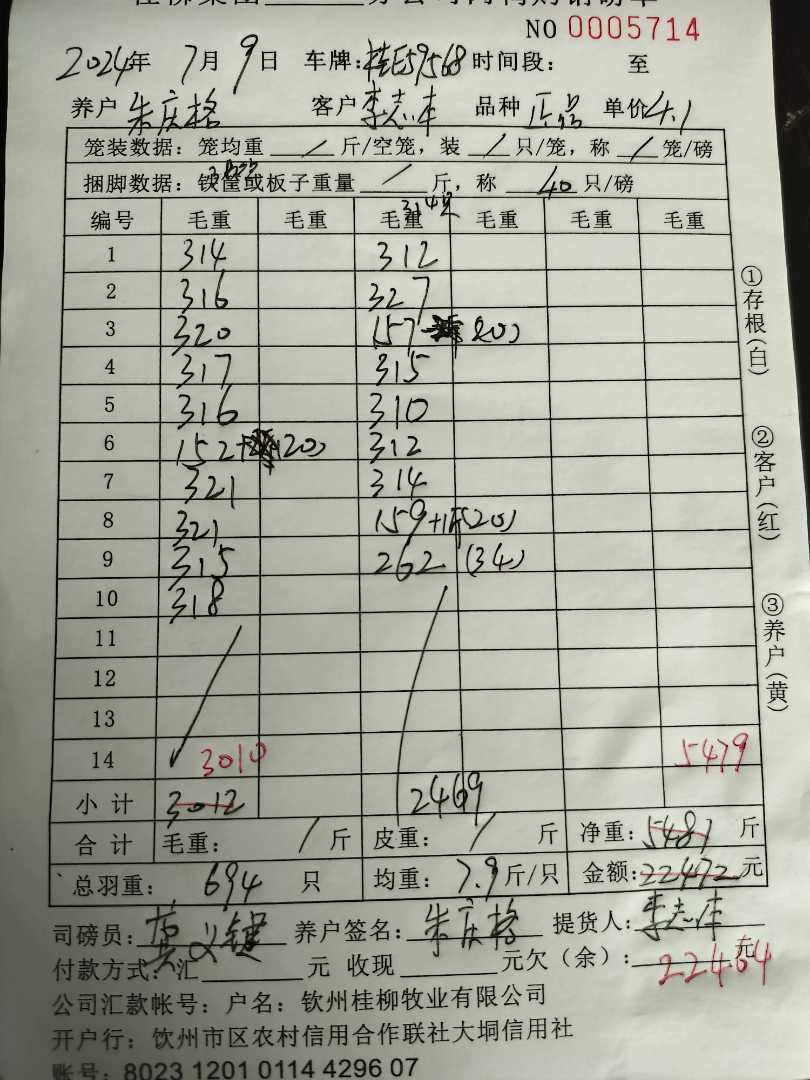 NO 0005714
2024年 7月 9日 车牌:桂E59568 时间段: 至
养户 朱庆格 客户 李志库 品种 正品 单价 4.1
笼装数据: 笼均重 / 斤/空笼, 装 / 只/笼, 称 / 笼/磅
捆脚数据: 铁筐或板子重量 / 斤, 称 40 只/磅
编号 毛重 毛重 毛重 毛重 毛重 毛重
1 314 312
2 316 327
3 320 157 (20)
4 317 315
5 316 310
6 152+ (20) 312
7 321 314
8 321 159+1 (20)
9 315 262 (34)
10 318
11
12
13
14 3010 5479
小计 3012 2469
合计 毛重: / 斤 皮重: / 斤 净重: 5481 斤
总羽重: 694 只 均重: 7.9 斤/只 金额: 22472 元
司磅员: 养户签名: 朱庆格 提货人: 李志库
付款方式: 汇 元 收现 元欠(余): 22464 元
公司汇款帐号: 户名: 钦州桂柳牧业有限公司
开户行: 饮州市区农村信用合作联社大垌信用社
账号: 8023 1201 0114 4296 07
①存根(白)
②客户(红)
③养户(黄)